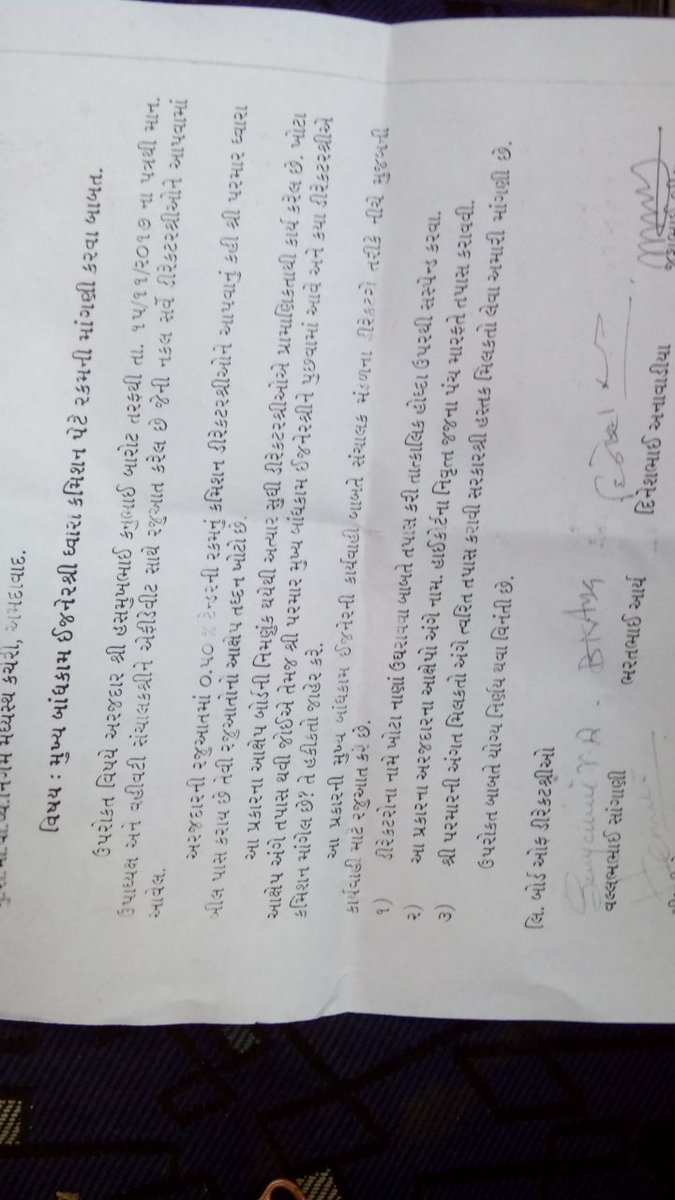 મધ્યસ્થ કચેરી, અમદાવાદ.
વિષય : મુખ્ય બાંધકામ ઈજનેરશ્રી ધ્વારા કમિશન પેટે રકમની માંગણી કરવા બાબત.
ઉપરોક્ત વિષયે અરજદાર શ્રી હસમુખભાઈ કનુભાઈ બારોટ તરફથી તા. ૧૫/૧૧/૨૦૧૭ ના પત્રથી માન.
ઉપાધ્યક્ષ અને વહીવટી સંચાલકશ્રીને એફીડેવીટ સાથે રજુઆત કરેલ છે જેની નકલ સર્વે ડીરેકટરશ્રીઓને આપવામાં
આવેલ.
અરજદારની રજુઆતમાં ૦.૫૦% ટેન્ડરની રકમનું કમિશન ડીરેકટરશ્રીઓને આપવાનું કહી શ્રી પરમાર ધ્વારા
બીલ પાસ કરાય છે તેવી રજુઆતોનો આક્ષેપ તદ્દન ખોટો છે.
આ પ્રકારના આક્ષેપ બોર્ડની નિમણુંક થયેથી અત્યાર સુધી ડીરેકટરશ્રીઓએ પ્રામાણિકતાથી કાર્ય કરેલ છે. ખોટા
આક્ષેપ અંગે તપાસ થવી જોઈએ તેમજ શ્રી પરમાર મુખ્ય બાંધકામ ઈજનેરશ્રીને પુછવામાં આવે અને કયા ડીરેકટરશ્રીએ
કમિશન માંગેલ છે? તે હકીકતો જાહેર કરે.
આ પ્રકારની મુખ્ય બાંધકામ ઈજનેરની કાર્યવાહી બાબતે સંચાલક મંડળના ડીરેકટરો તરીકે નીચે મુજબની
કાર્યવાહી માટે રજુઆત કરે છે.
૧) ડીરેકટરોના નામે ખોટા નાણાં ઉઘરાવવા બાબતે તપાસ કરી તાત્કાલિક હોદ્દા ઉપરથી સસ્પેન્ડ કરવા.
૨) આ પ્રકારના અરજદારના આક્ષેપો અંગે નામ. હાઈકોર્ટના નિવૃત્ત જજના પંચ મારફતે તપાસ કરાવવી.
૩) શ્રી પરમારની અંગત મિલકતો અંગે ત્વરિત તપાસ કરાવી સરકારશ્રી હસ્તક મિલકતો લેવા અમારી માંગણી છે.
ઉપરોક્ત બાબતે યોગ્ય નિર્ણય થવા વિનંતી છે.
લિ. બોર્ડ ઓફ ડીરેકટરશ્રીઓ
વલ્લભભાઈ સાંગાણી ભરતભાઈ આર્ય દિનેશભાઈ અનાવાડીયા